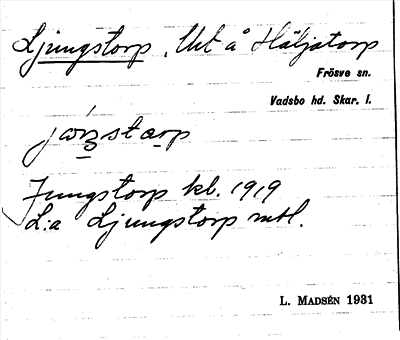 Ljungstorp, Ut å Häljatorp
Frösve sn.
Vadsbo hd. Skar. l.
Jungstorp kl. 1919
L:a Ljungstorp mtl.
L. MADSÉN 1931